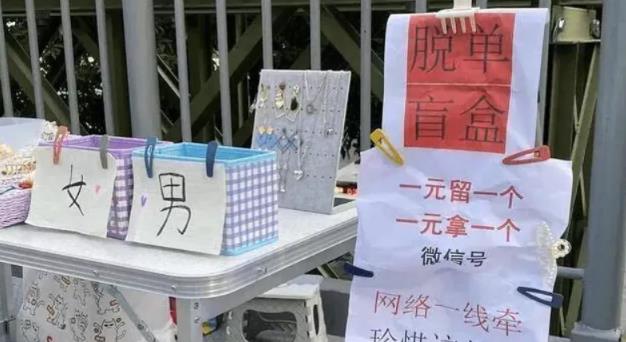 女
男
脱单
盲盒
一元留一个
一元拿一个
微信号
网络一线牵
珍惜这